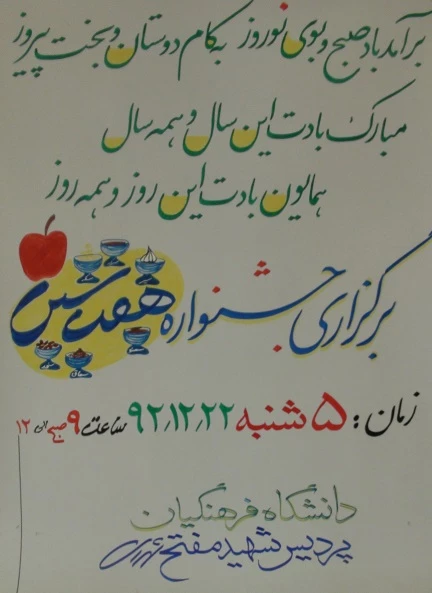 برآمد باد صبح و بوی نوروز به کام دوستان و بخت پیروز
مبارک بادت این سال و همه سال
همایون بادت این روز و همه روز
برگزاری جشنواره هفت سین
زمان: ۵ شنبه ۹۲،۱۲،۲۲ ساعت ۹ صبح الی ۱۲
دانشگاه فرهنگیان
پردیس شهید مفتح شهرری